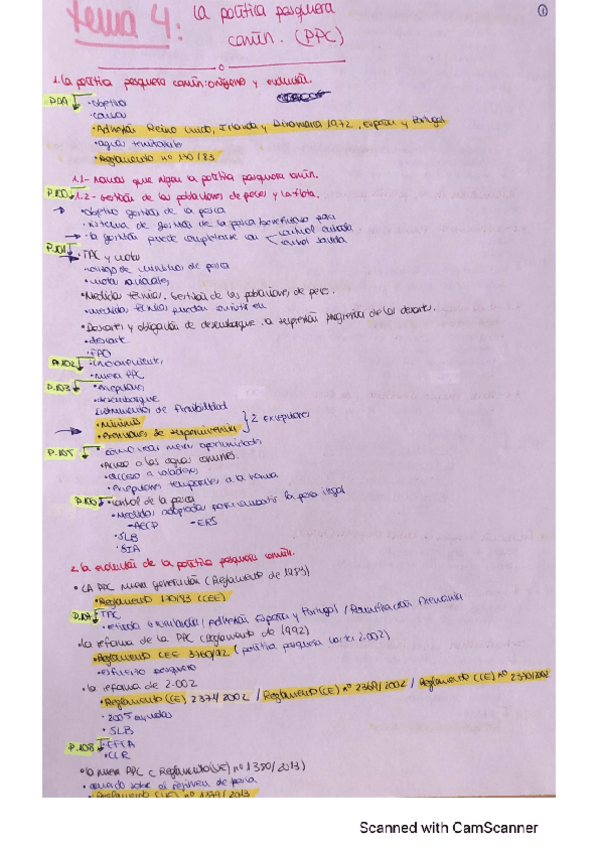 Tema 4: La política pesquera
común. (PPC)
1
1. La política pesquera común: orígenes y evolución.
P.99
• objetivo
• causas
• Adhesión Reino Unido, Irlanda y Dinamarca 1972, España y Portugal
• aguas territoriales
• Reglamento nº 170/83
1.1- normas que rigen la política pesquera común.
P.100 1.2- Gestión de las poblaciones de peces y la flota.
• objetivo gestión de la pesca
• sistema de gestión de la pesca
• la gestión puede completarse con control entrada
control salida
P.101
• TAC y cuotas
• consejo de ministros de pesca
• cuotas nacionales
• Medidas técnicas. Gestión de las poblaciones de peces.
• medidas técnicas pueden
• Descartes y obligación de desembarque. la supresión progresiva de los descartes.
• descarte
• FAO
P.102 • inconvenientes
• nueva PPC
P.103
• desembarque
instrumentos de flexibilidad
• Minimis
• Exenciones de supervivencia
2 excepciones
P.105 • como crear nuevas oportunidades
• Acceso a las aguas comunes.
• acceso a caladeros
• excepciones temporales a la norma
P.106 • control de la pesca
• Medidas adoptadas para combatir la pesca ilegal
- AECP - ERS
• SLB
• SIA
2. La evolución de la política pesquera común.
• LA PPC nueva generación (Reglamento de 1983)
• Reglamento 170/83 (CEE)
P.107 • TAC
• retirada Groenlandia / Adhesión España y Portugal / Reunificación Alemania
• la reforma de la PPC (Reglamento de 1992)
• Reglamento CEE 3760/92 (política pesquera hasta 2.002)
• esfuerzo pesquero
• la reforma de 2.002
• Reglamento (CE) 2371/2002 / Reglamento (CE) nº 2369/2002 / Reglamento (CE) nº 2370/2002
• 2005 ayudas
• SLB
P.108 • EFCA
• CCR
• la nueva PPC (Reglamento (UE) nº 1380/2013)
• acuerdo sobre el régimen de pesca.
• Reglamento (UE) nº 1379/2013
Scanned with CamScanner